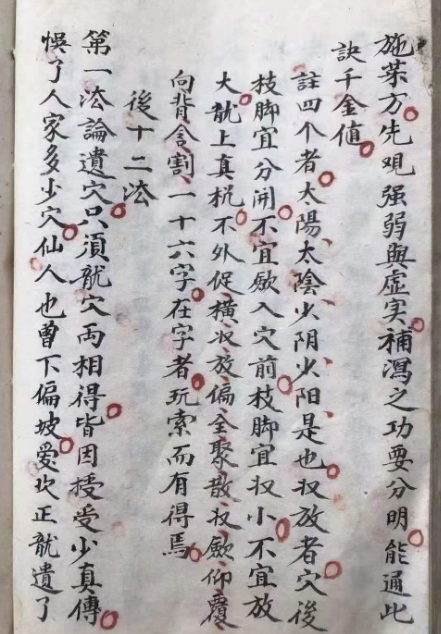 施茶方先观强弱與虚实補瀉之功要分明能通此
訣千金值
註四个者太陽太陰少阴少阳是也収放者穴後
枝脚宜分開不宜歛入穴前枝脚宜収小不宜放
大龍上真机不外促横収放偏全聚散収歛仰覆
向背含割一十六字在字者玩索而有得焉
後十二法
第一法論遺穴只須龍穴両相得皆因授受少真傳
悞了人家多少穴仙人也曾下偏坡爱坎正龍遺了